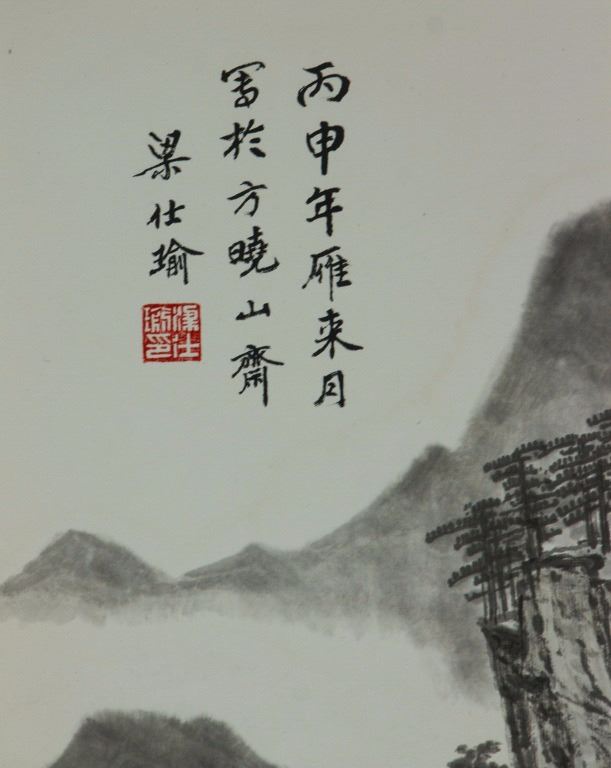 丙申年雁来月
写於方曉山齋
梁仕瑜
梁仕瑜印